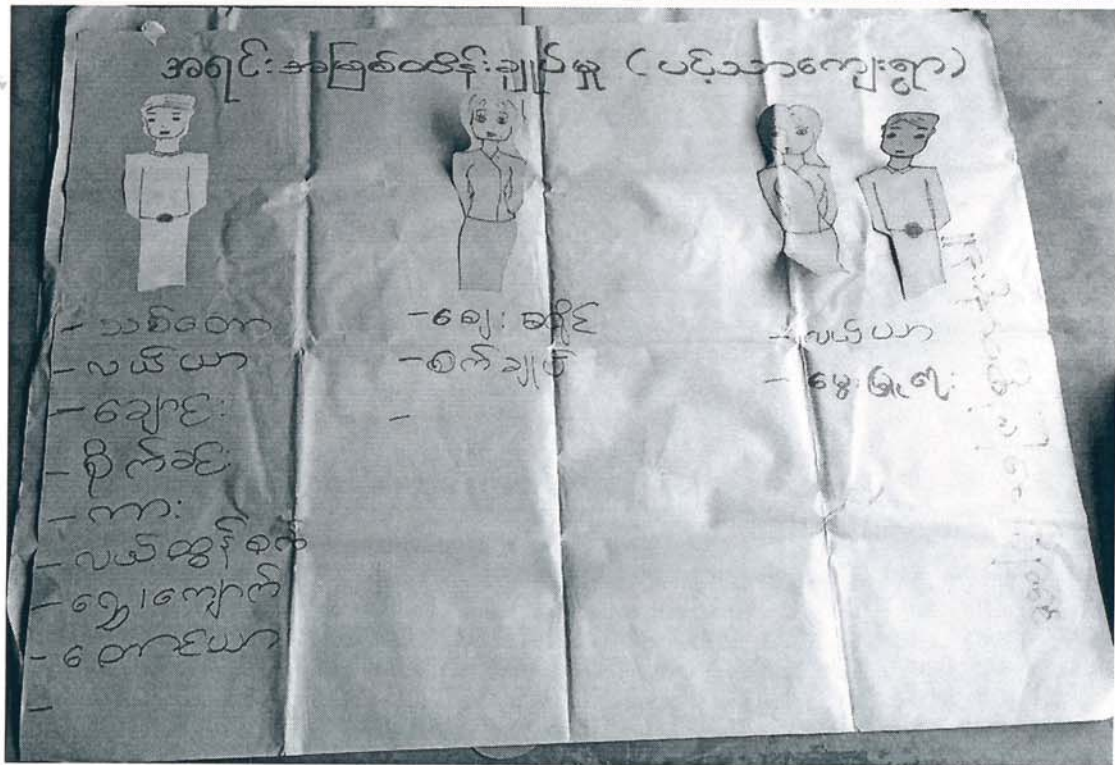 အရင်းအမြစ်ထိန်းချုပ်မှု (ပင့်သာကျေးရွာ)
- သစ်တော
- လယ်ယာ
- ချောင်း
- စိုက်ခင်း
- ကား
- လယ်ထွန်စက်
- ရွှေ၊ကျောက်
- တောင်ယာ
-
- ဈေးဆိုင်
- စက်ချုပ်
-
- လယ်ယာ
- မွေးမြူရေး